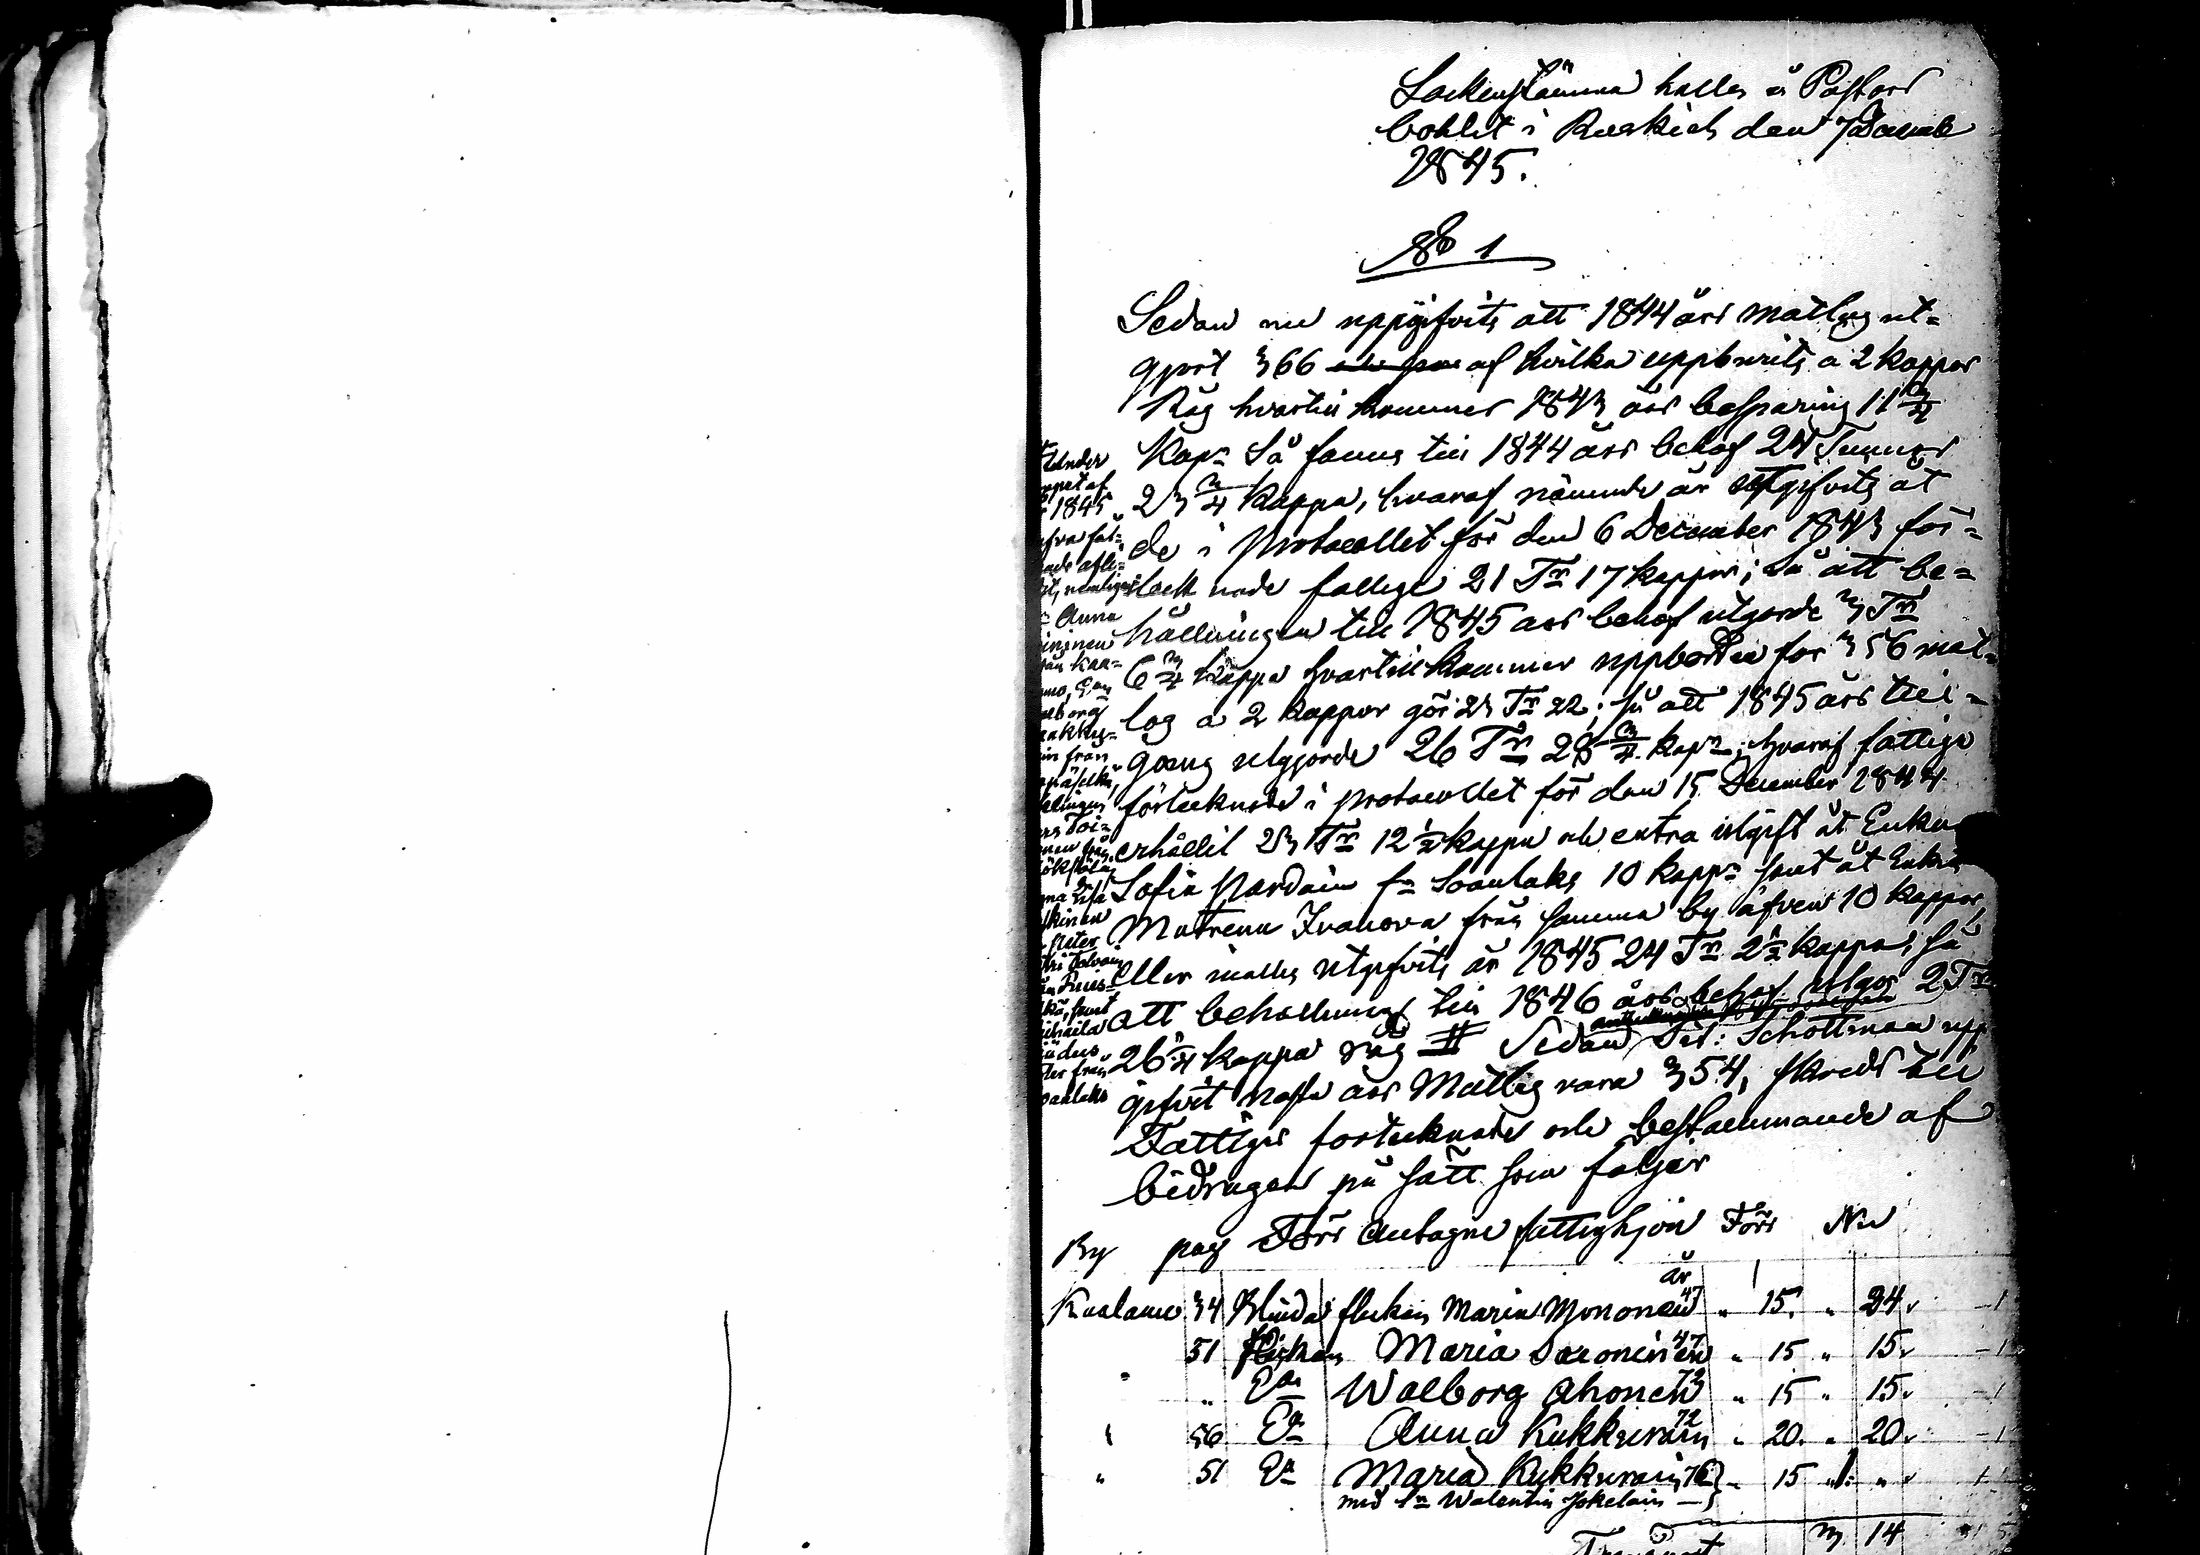 Sockenstämma hålles å Pastors
bohlet i Ruskiela den 7 Decemb
1845.
No 1
Sedan nu uppgifvits att 1844 års matlag ut-
gjort 366 af hvilka uppburits a 2 kappor
Råg hvartill kommer 1843 års besparing 11 3/4
Kapr Så fanns till 1844 års behof 24 Tunnor
23 3/4 kappa, hvaraf nämnde år utgifvits åt
de i Protocollet för den 6 December 1843 för-
teck nade fattige 21 Tr 17 kappor; Så att be-
hållningen till 1845 års behof utgorde 3 Tr
6 3/4 kappa hvartill kommer uppbörden for 356 mat-
lag a 2 kappor gör 23 Tr 22; så att 1845 års till-
gång utgjorde 26 Tr 28 3/4 kapr; hvaraf fattige
förtecknade i protocollet för den 15 December 1844
erhållit 23 Tr 12 1/2 kappa och extra utgift åt Enkan
Sofia Pardain f- Soanlaks 10 kappr samt åt Enkan
Matrena Ivanova från samma by äfven 10 kappor,
eller inalles utgifvits år 1845 24 Tr 2 1/2 kappa, så
att behållning till 1846 års behof utgör 2 Tr
26 1/4 kappa råg # Sedan Schottman upp
gifvit nästa års Matlag vara 354, skreds till
Fattiges förtecknade och bestämmande af
bidragen på sätt som följer
By pag Förr Antagne fattighjon Förr Nu
år
Kaalamo 34 Blinda flickan Maria Mononen 47 " 15. " 24
51 flickan Maria Soroninen 47 " 15 " 15
" " Ea Walborg Ahonen 73 " 15 " 15
" 56 Ea Anna Kukkurain 72 " 20. " 20
" 51 Ea Maria Kukkurain 76 " 15 " "
med sn Walentin Jokelain
Transport 3 14
under
1845
Anna
från